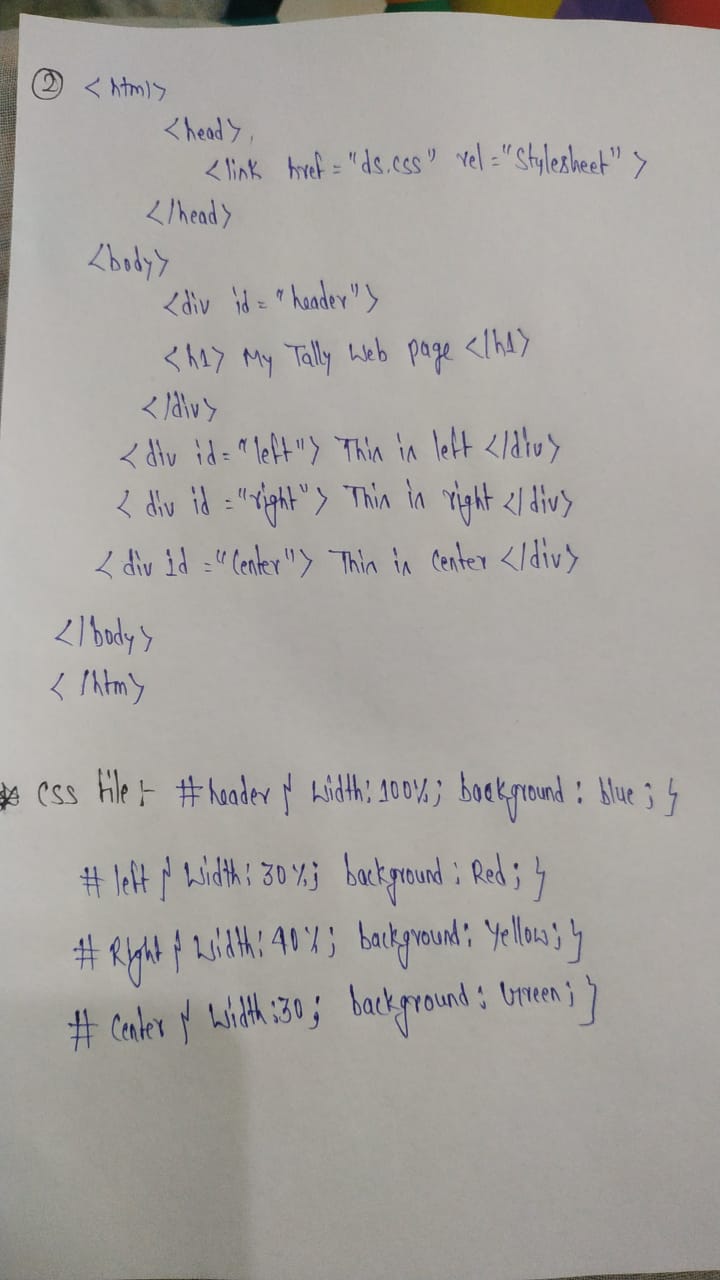 ② <html>
<head>
<link href="ds.css" rel="Stylesheet">
</head>
<body>
<div id="header">
<h1> My Tally Web page </h1>
</div>
<div id="left"> This is left </div>
<div id="right"> This is right </div>
<div id="Center"> This is Center </div>
</body>
</htm>
* CSS file :- #header { width: 100%; background: blue; }
# left { width: 30%; background: Red; }
# Right { width: 40%; background: Yellow; }
# Center { width: 30; background: Green; }